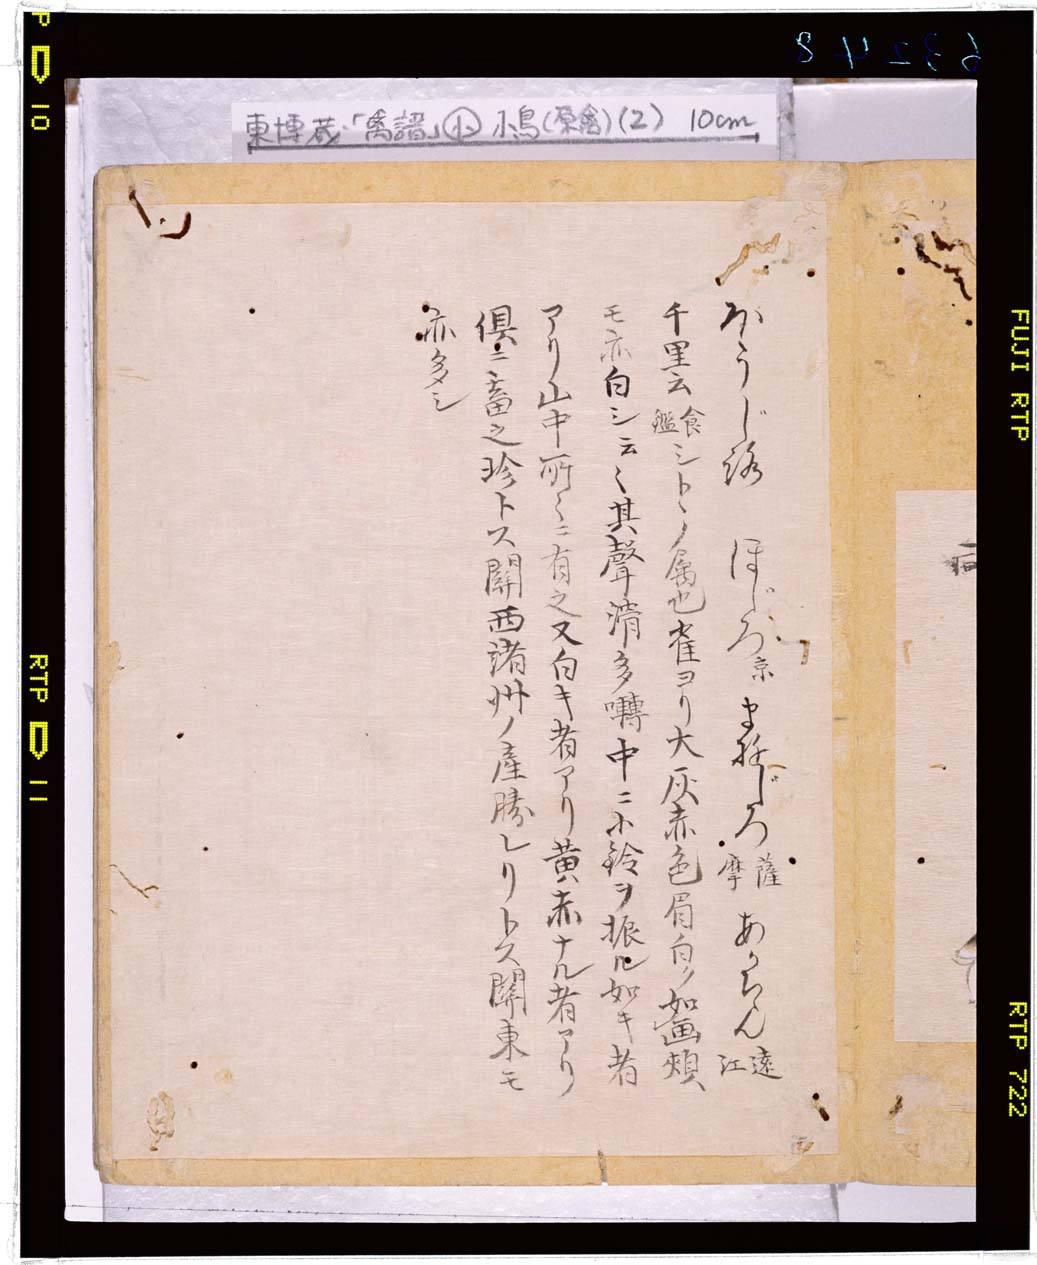 63248
東博蔵・「禽譜」小 小鳥(原禽)(2) 10cm
ほうじろ ほじろ京 まゆじろ薩摩 あかちん遠江
千里云食鑑シトヽノ属也雀ヨリ大灰赤色眉白ク如画頬
モ亦白シ云〻其聲清多囀中ニ小鈴ヲ振ル如キ者
アリ山中所〻ニ有之又白キ者アリ黄赤ナル者アリ
倶ニ畜之珍トス關西諸州ノ産勝レリトス關東モ
亦多シ
P 10
RTP 11
FUJI RTP
RTP 722